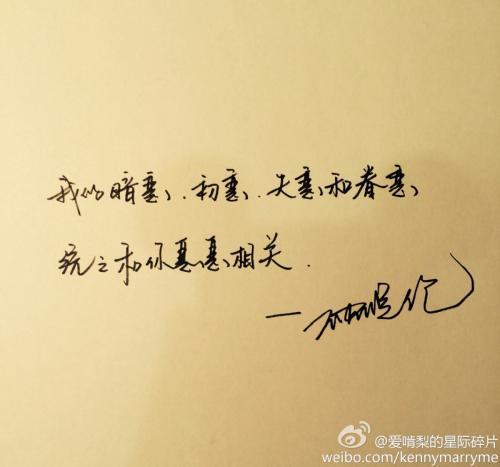 我的暗恋、初恋、失恋和眷恋
统之和你恋恋相关.
@爱啃梨的星际碎片
weibo.com/kennymarryme